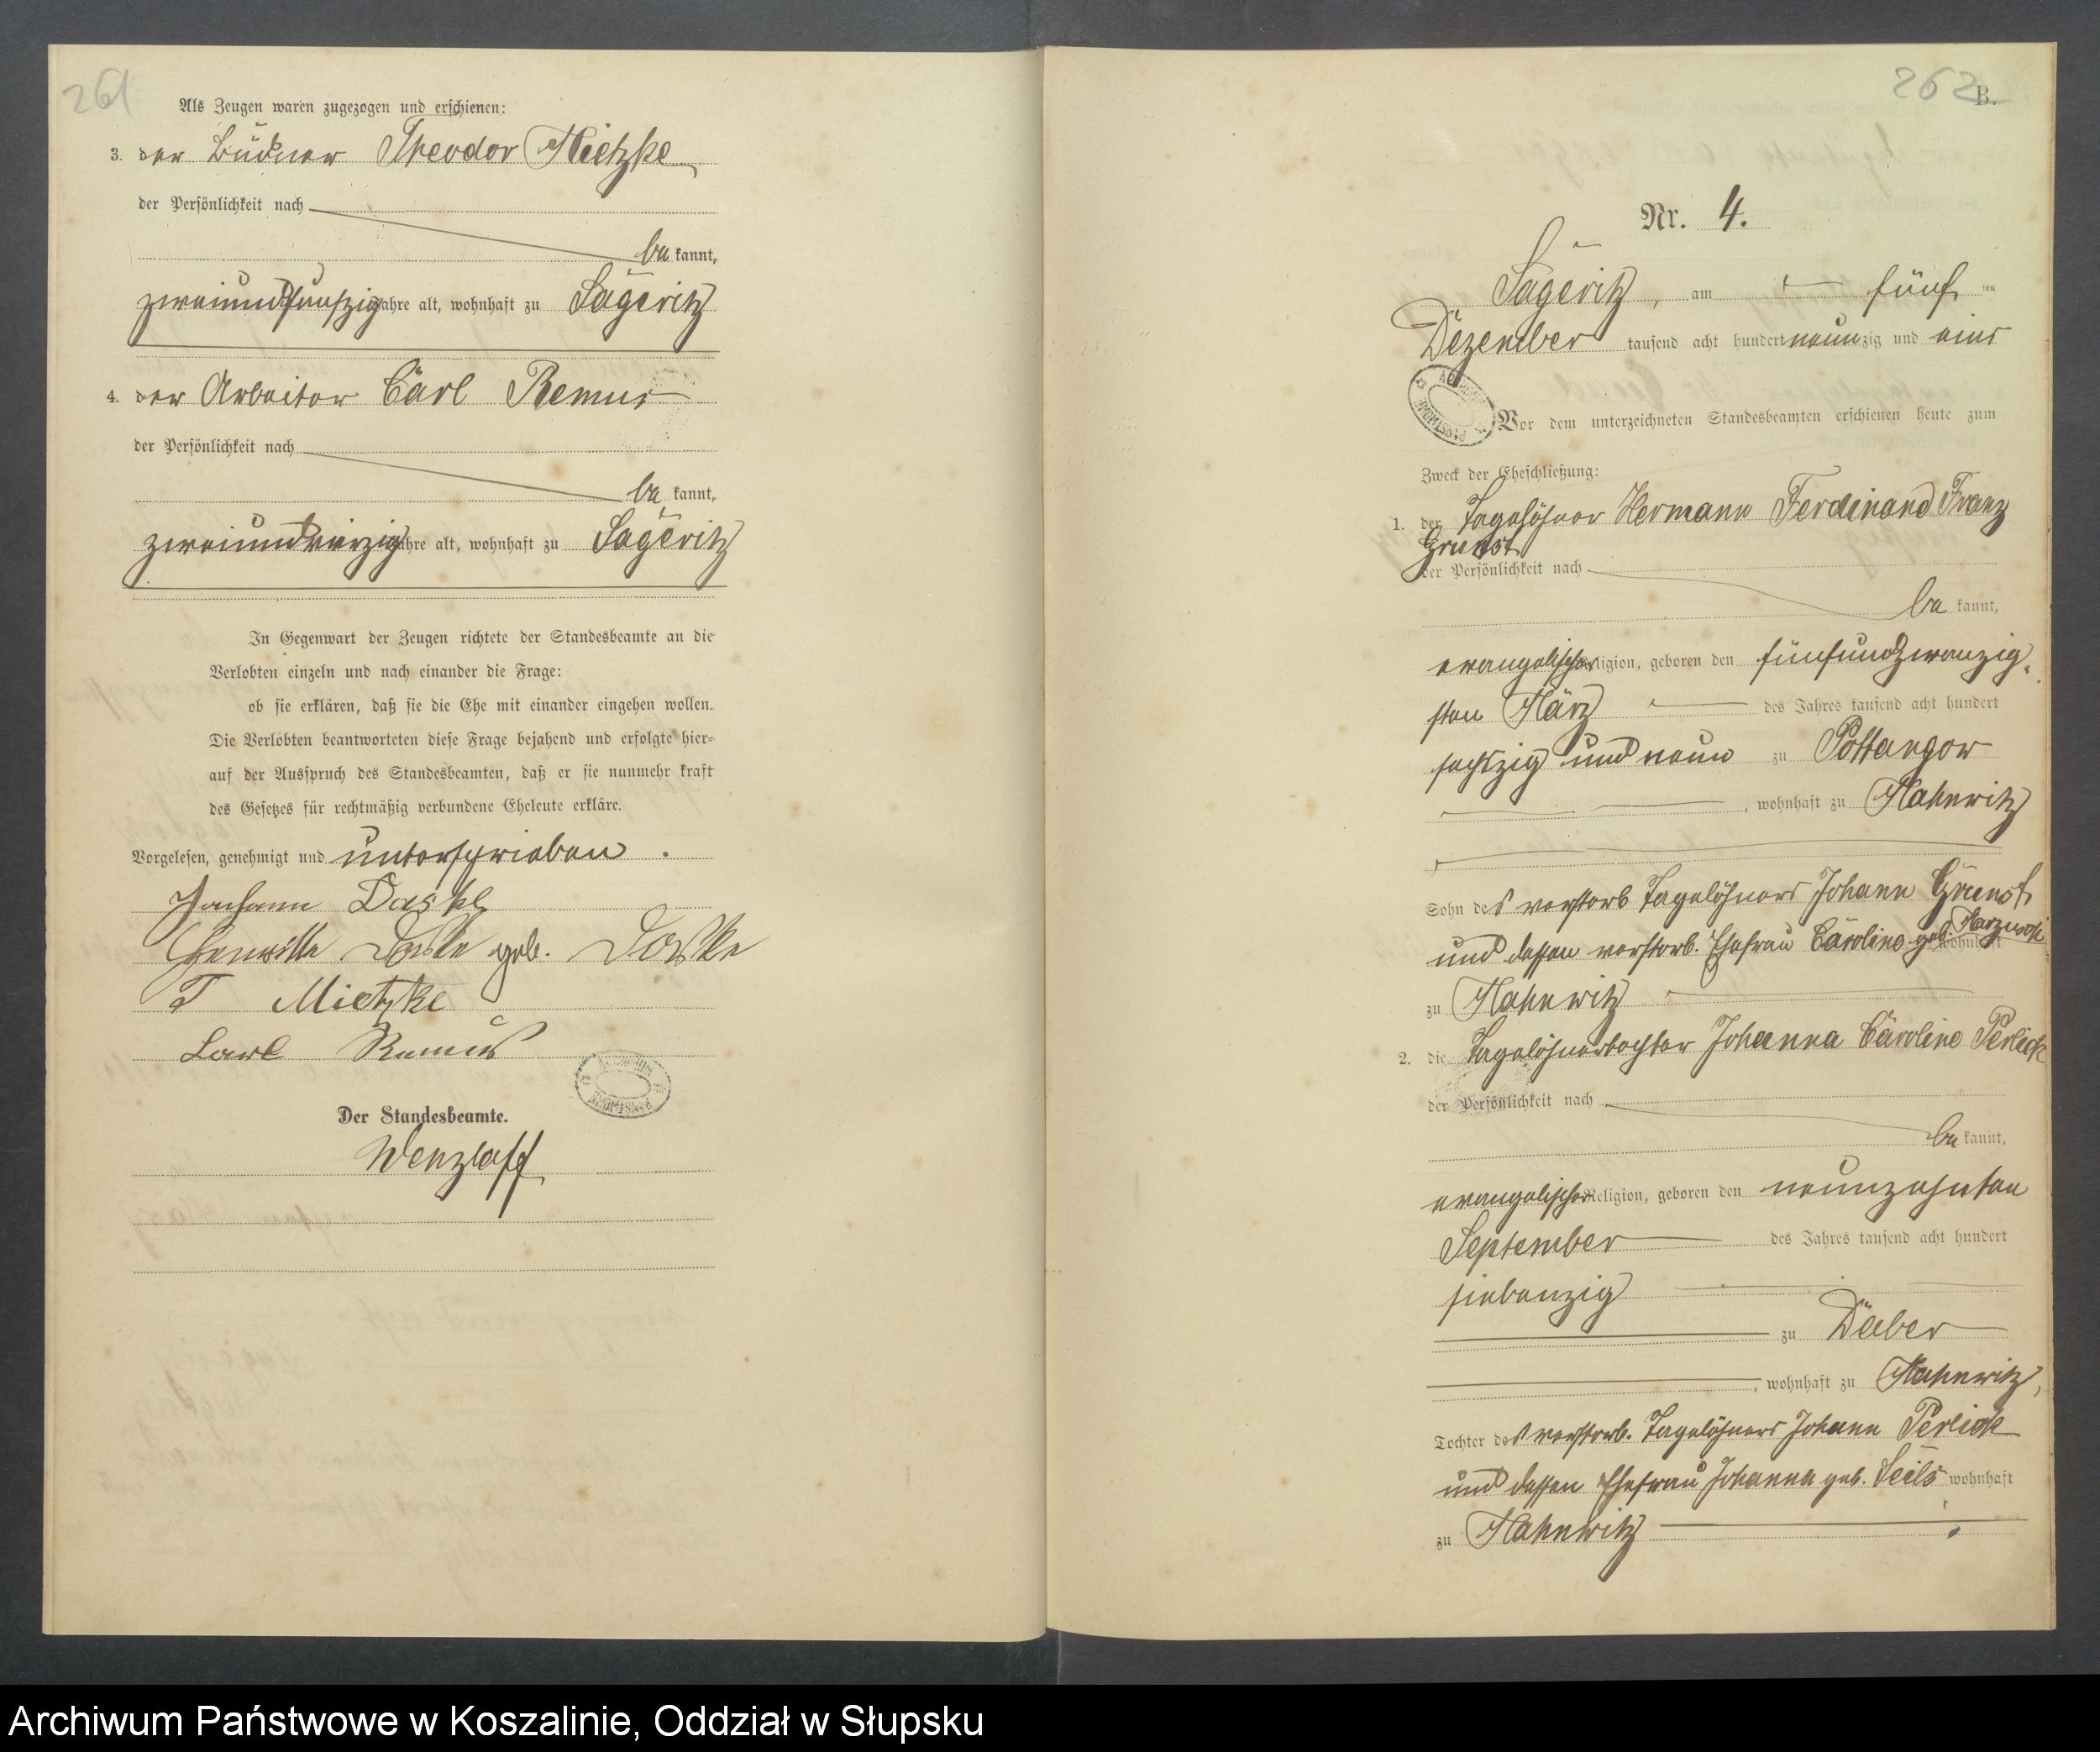 261
Als Zeugen waren zugezogen und erschienen:
3. der Büdner Theodor Mietzke
der Persönlichkeit nach
be kannt,
zweiundfünfzig Jahre alt, wohnhaft zu Sageritz
4. der Arbeiter Carl Remus
der Persönlichkeit nach
be kannt,
zweiundvierzig Jahre alt, wohnhaft zu Sageritz
In Gegenwart der Zeugen richtete der Standesbeamte an die
Verlobten einzeln und nach einander die Frage:
ob sie erklären, daß sie die Ehe mit einander eingehen wollen.
Die Verlobten beantworteten diese Frage bejahend und erfolgte hier-
auf der Ausspruch des Standesbeamten, daß er sie nunmehr kraft
des Gesetzes für rechtmäßig verbundene Eheleute erkläre.
Vorgelesen, genehmigt und unterschrieben.
Daske
Daske geb. Daske
T Mietzke
Carl Remus
Der Standesbeamte.
Wenzlaff
262
B.
Nr. 4.
Sageritz, am fünf ten
Dezember tausend acht hundert neunzig und eins
Vor dem unterzeichneten Standesbeamten erschienen heute zum
Zweck der Eheschließung:
1. der Tagelöhner Hermann Ferdinand Franz
Grunst
der Persönlichkeit nach
be kannt,
evangelischer Religion, geboren den fünfundzwanzig-
sten März des Jahres tausend acht hundert
sechszig und neun zu Pottangow
, wohnhaft zu Mahnwitz
Sohn des verstorb Tagelöhners Johann Grunst
und dessen verstorb. Ehefrau Caroline geb. wohnhaft
zu Mahnwitz
2. die Tagelöhnertochter Johanna Caroline Perlick
der Persönlichkeit nach
be kannt,
evangelischer Religion, geboren den neunzehnten
September des Jahres tausend acht hundert
siebenzig
zu Daber
, wohnhaft zu Mahnwitz,
Tochter des verstorb. Tagelöhners Johann Perlick
und dessen Ehefrau Johanna geb. Seils wohnhaft
zu Mahnwitz
Archiwum Państwowe w Koszalinie, Oddział w Słupsku